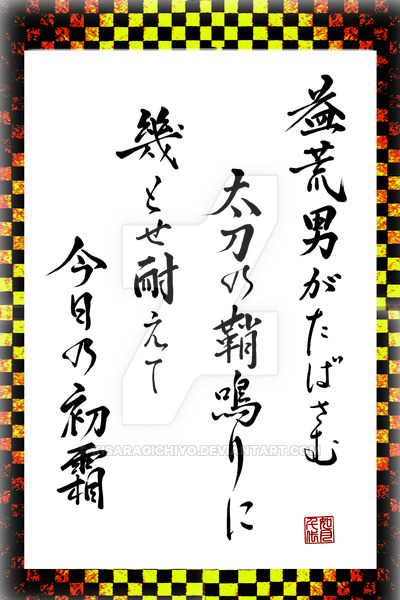 益荒男がたばさむ
太刀の鞘鳴りに
幾とせ耐えて
今日の初霜